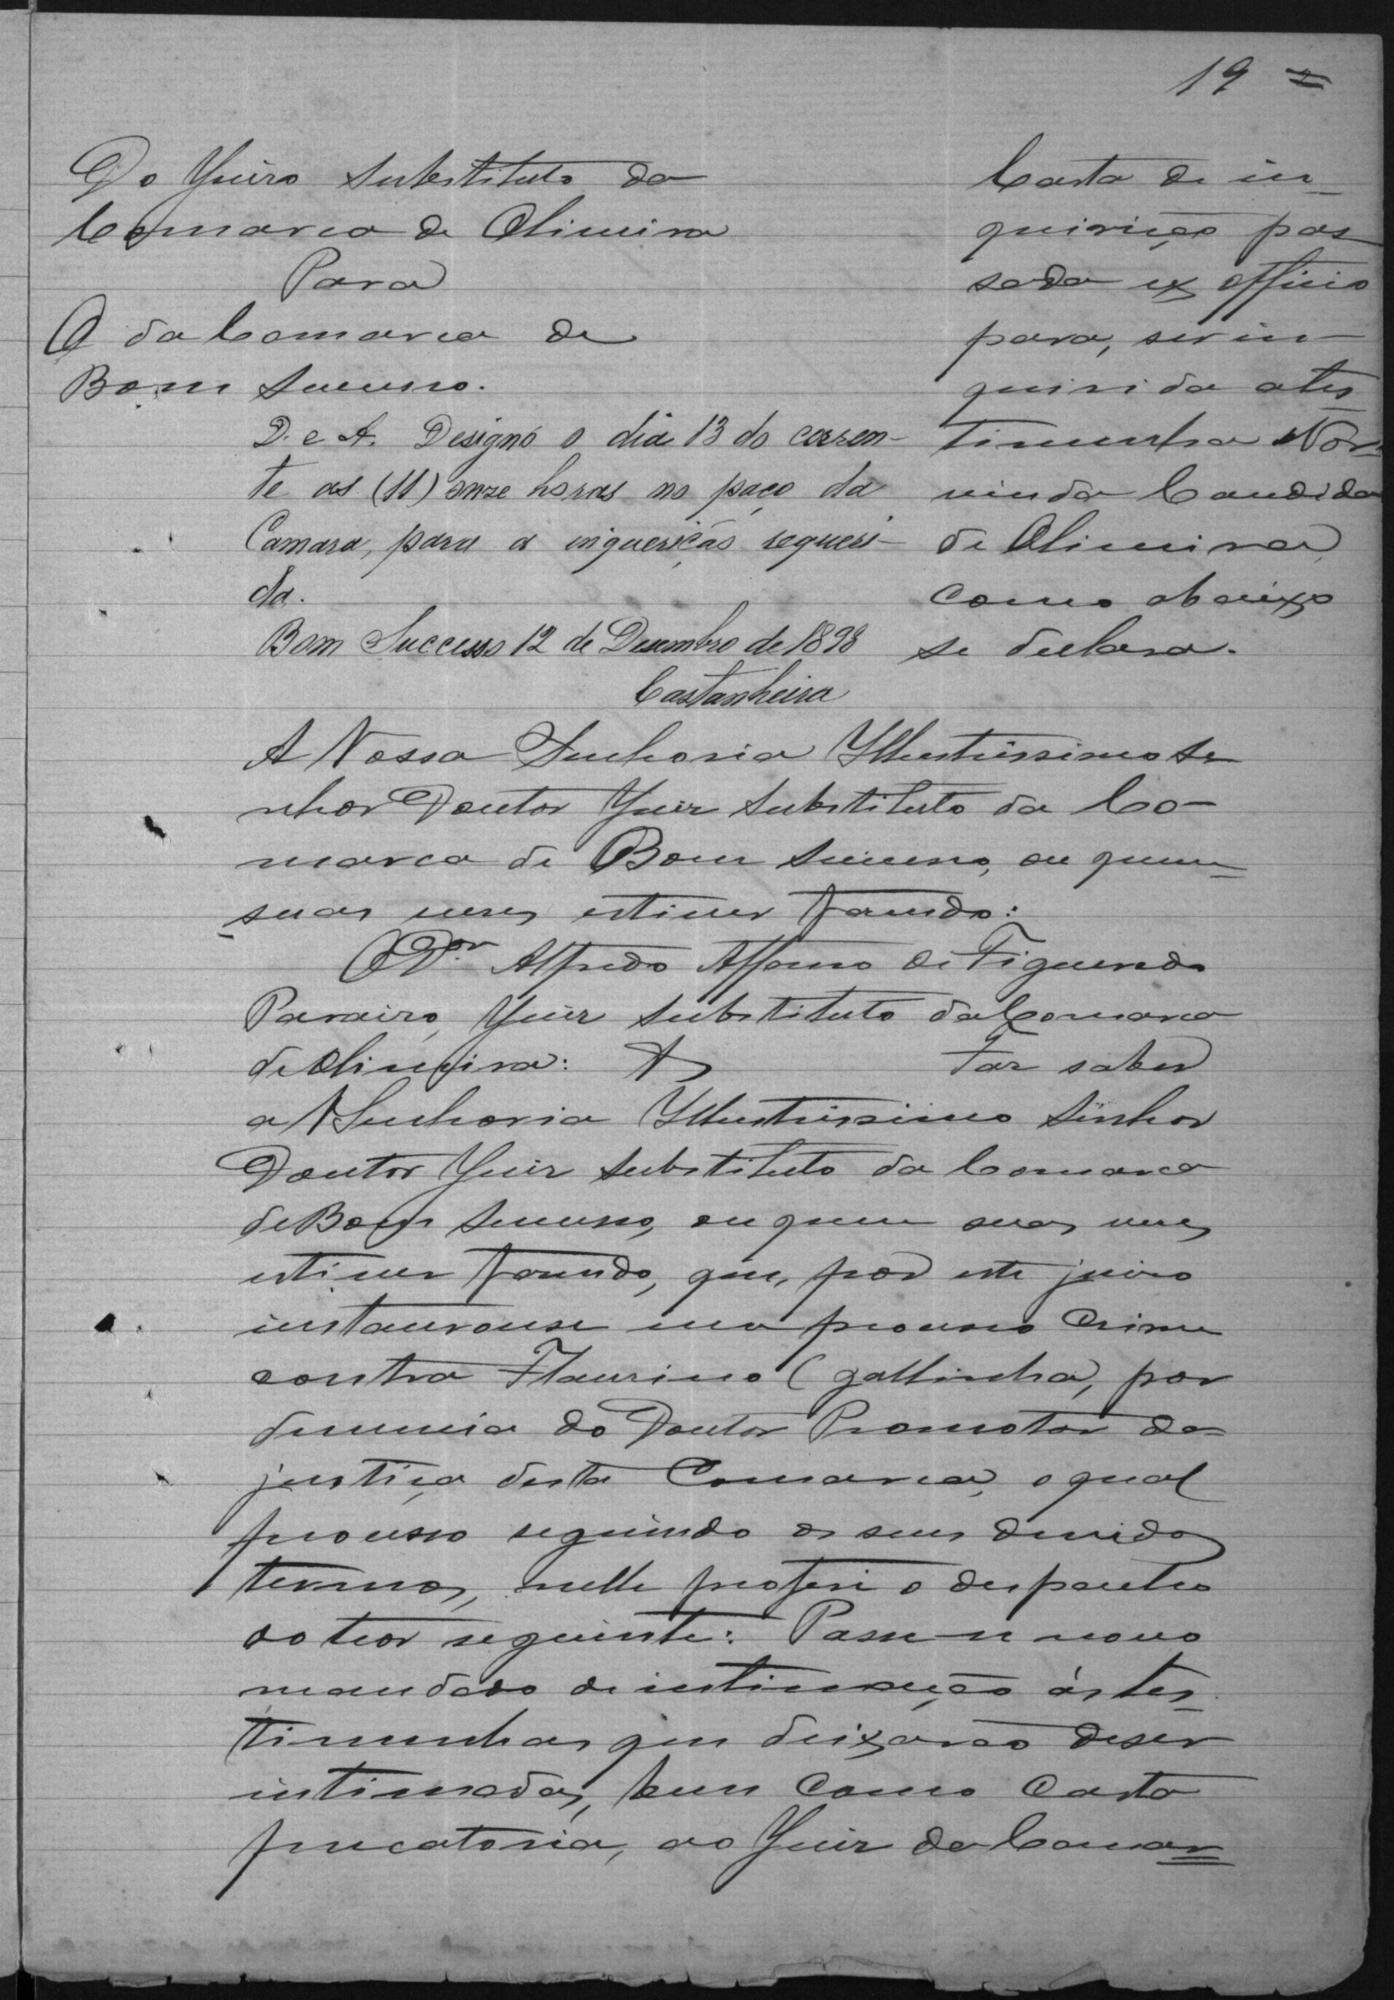 19 =
Do Juizo Substituto da
Comarca de Oliveira
Para
O da Comarca de
Bom Sucesso.
Carta de in-
quirição pas-
sada ex officio
para, ser in-
quirida a tes-
timunha Nor-
vinda Candida
de Oliveira
como abaixo
se declara.
D. e A. Designo o dia 13 do corren-
te as (11) onze horas no paço da
Camara, para a inquerição requeri-
da.
Bom Successo 12 de Desembro de 1898
Castanheira
A Vossa Senhoria Illustrissimo Se
nhor Doutor Juiz Substituto da Co-
marca de Bom Sucesso, ou quem
suas vezes estiver fazendo:
O Dor. Alfredo Affonso de Figueredo
Paraizo, Juiz Substituto da Comarca
de Oliveira: Faz saber
a V Senhoria Illustrissimo Sinhor
Doutor Juiz Substituto da Comarca
de Bom Sucesso, ou quem suas vezes
estiver fazendo, que, por este juizo
instaurouse um processo crime
contra Flaurino (gallinha, por
denuncia do Doutor Promotor da
justiça desta Comarca, o qual
processo seguindo os seus devidos
termos, nelle proferi o despacho
do teor seguinte: Passe-se novo
mandado de intimação ás tes-
timunhas que deixarão de ser
intimadas, bem como Carta
precatoria, ao Juiz da Comar